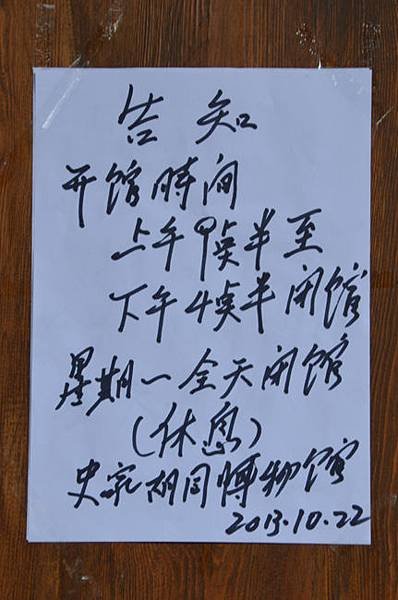 告知
开馆時间
上午9点半至
下午4点半闭馆
星期一全天闭馆
(休息)
史家胡同博物馆
2013.10.22